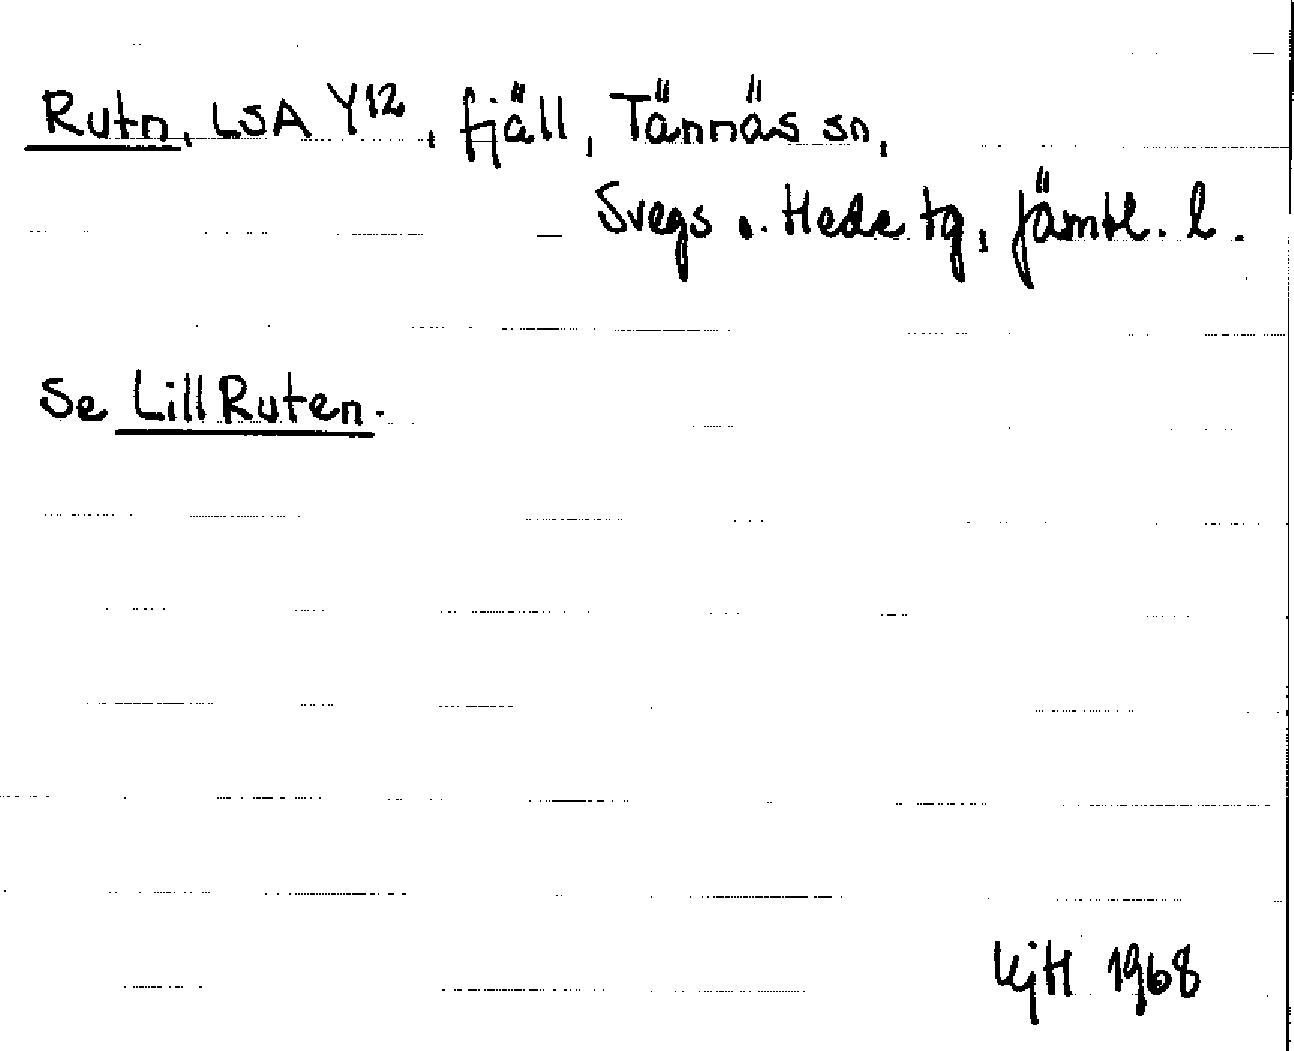 Rutn, LSA Y12, fjäll, Tännäs sn,
Svegs o. Hede tg, Jämtl. l.
Se LillRuten.
KjH 1968